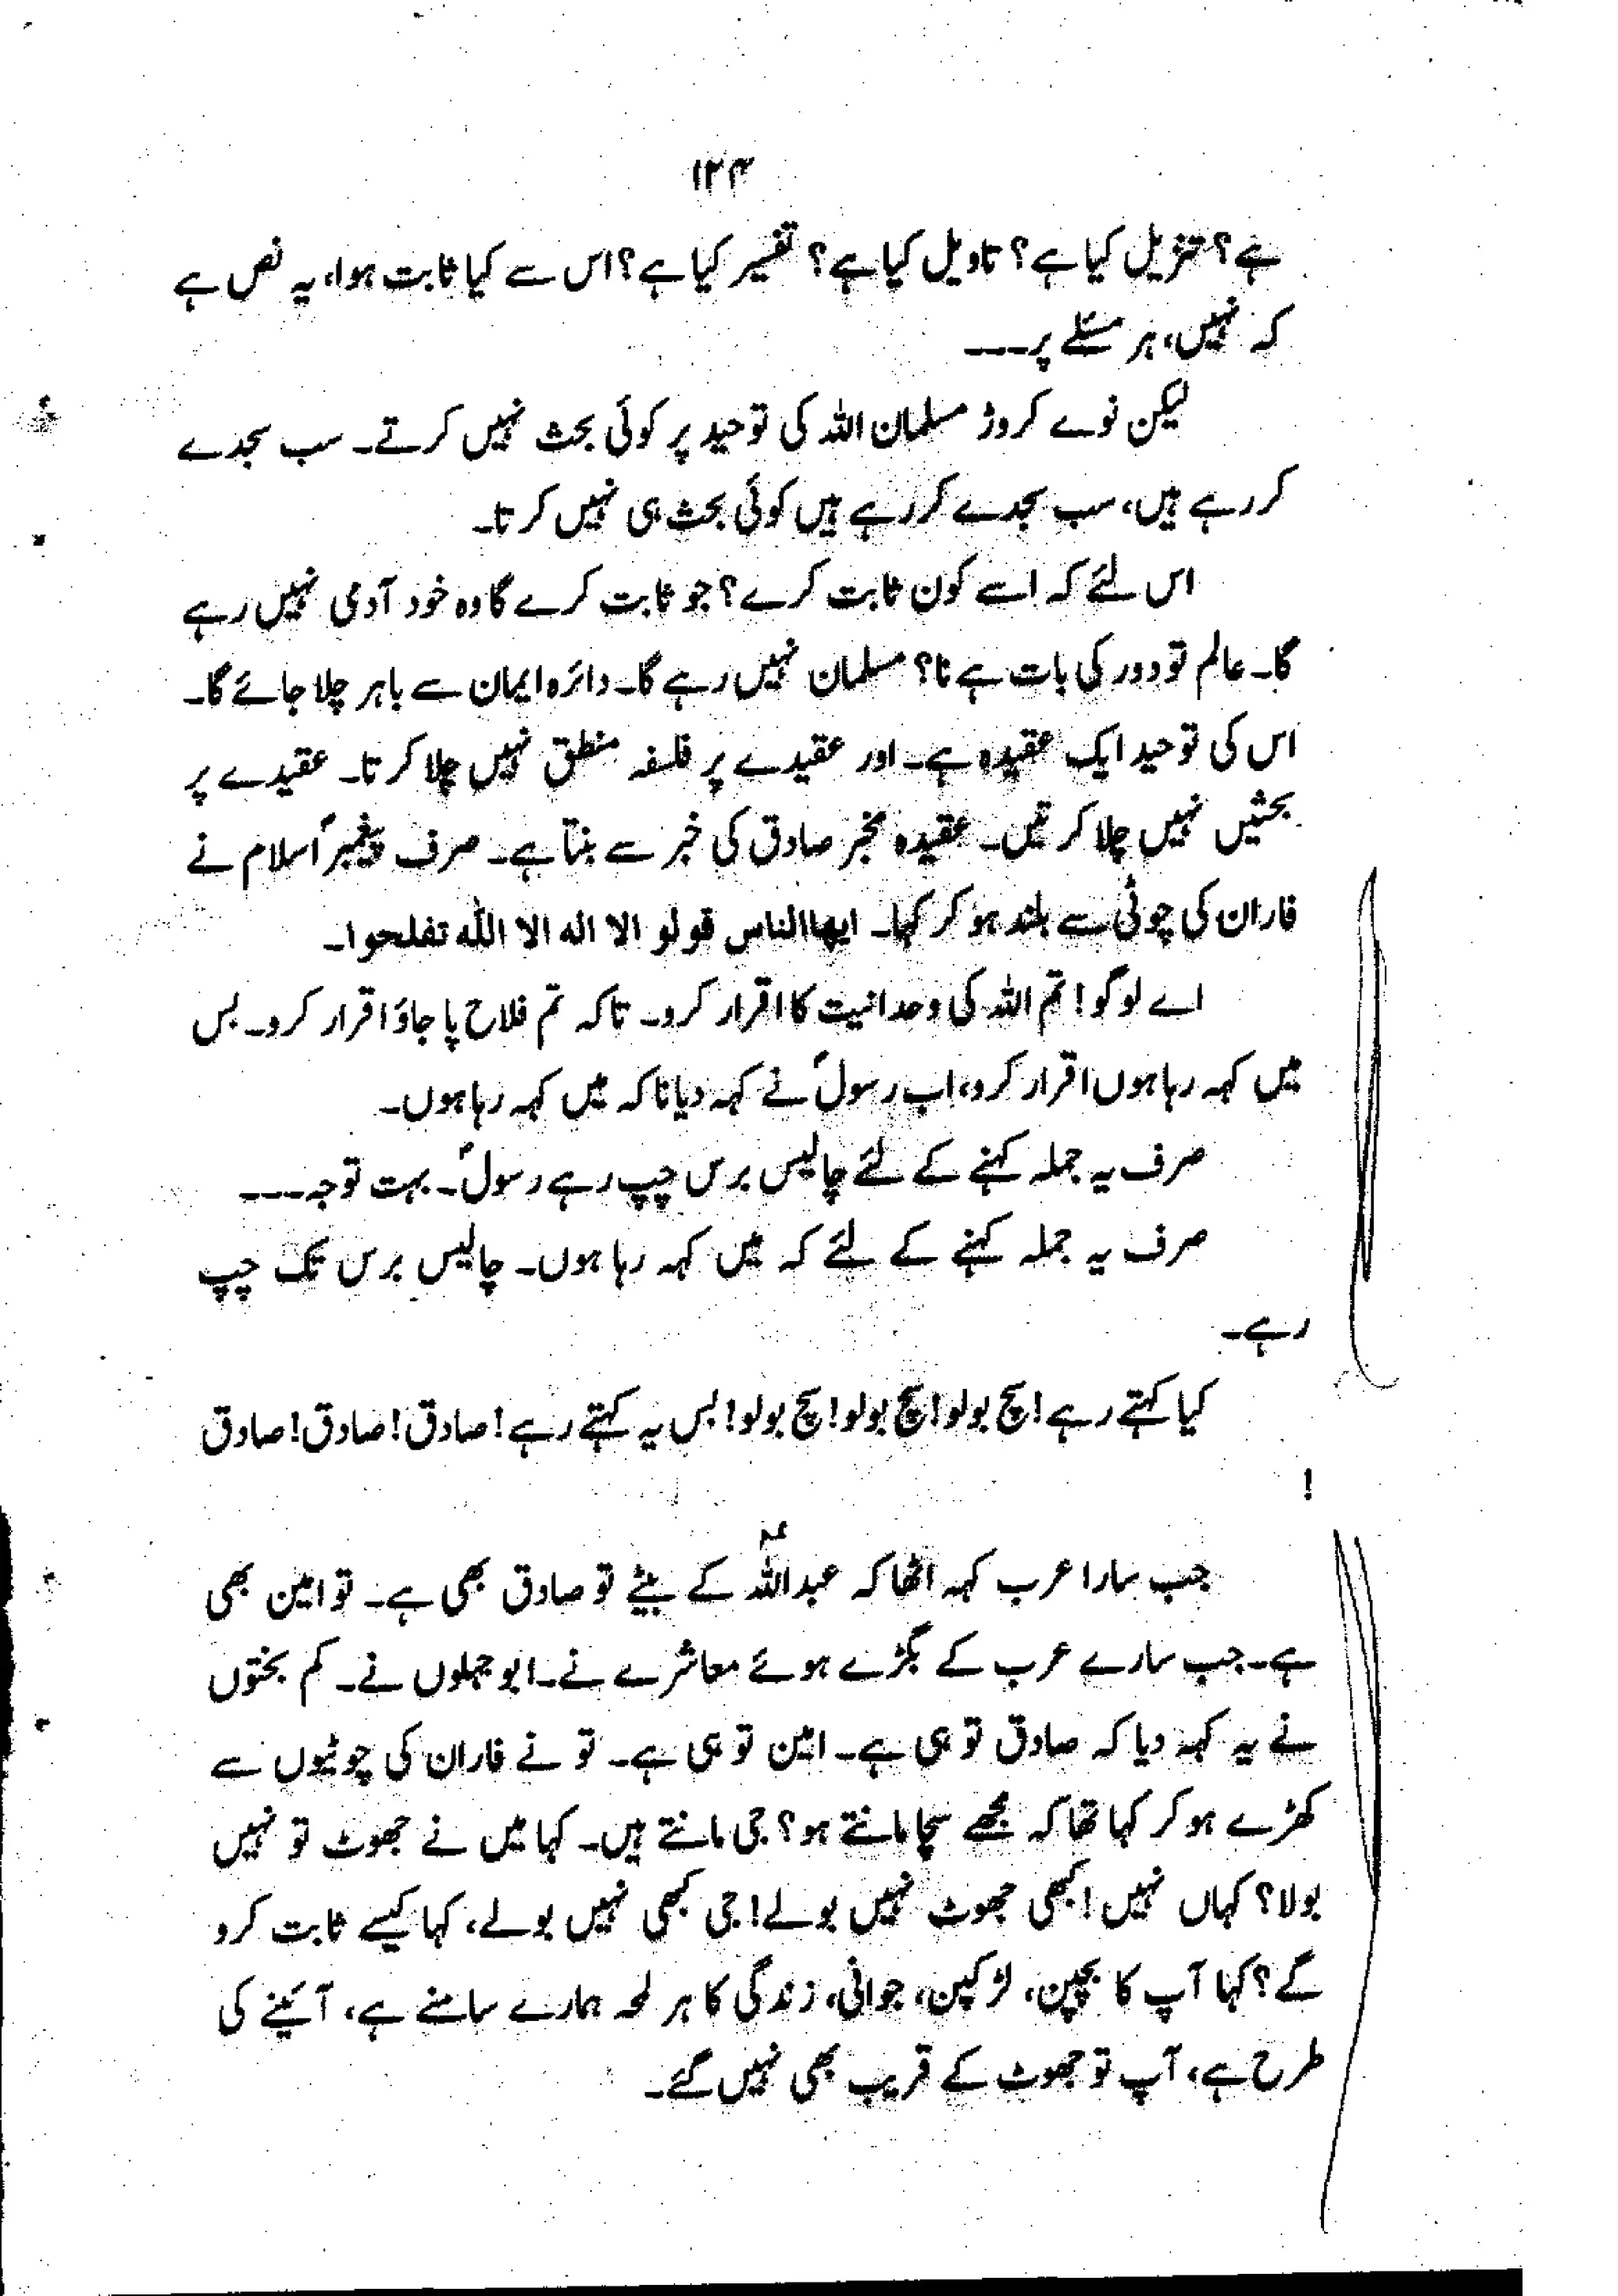 ۱۲۴
ہے؟ تنزیل کیا ہے؟ تاویل کیا ہے؟ تفسیر کیا ہے؟ اس سے کیا ثابت ہوا، یہ نص ہے
کہ نہیں، ہر مسئلے پر۔۔۔
لیکن نوے کروڑ مسلمان اللہ کی توحید پر کوئی بحث نہیں کرتے۔ سب سجدے
کر رہے ہیں، سب سجدے کر رہے ہیں کوئی بحث ہی نہیں کرتا۔
اس لئے کہ اسے کون ثابت کرے؟ جو ثابت کرے گا وہ خود آدمی نہیں رہے
گا۔ عالم تو دور کی بات ہے نا؟ مسلمان نہیں رہے گا۔ دائرہ ایمان سے باہر چلا جائے گا۔
اس کی توحید ایک عقیدہ ہے۔ اور عقیدے پر فلسفہ منطق نہیں چلا کرتا۔ عقیدے پر
بحثیں نہیں چلا کرتیں۔ عقیدہ مخبر صادق کی خبر سے بنتا ہے۔ صرف پیغمبرؐ اسلام نے
فاران کی چوٹی سے بلند ہو کر کہا۔ ایھا الناس قولو الا الہ الا اللّٰہ تفلحوا۔
اے لوگو! تم اللہ کی وحدانیت کا اقرار کرو۔ تاکہ تم فلاح پا جاؤ اقرار کرو۔ بس
میں کہہ رہا ہوں اقرار کرو، اب رسولؐ نے کہہ دیا نا کہ میں کہہ رہا ہوں۔
صرف یہ جملہ کہنے کے لئے چالیس برس چپ رہے رسولؐ۔ بہت توجہ۔۔۔
صرف یہ جملہ کہنے کے لئے کہ میں کہہ رہا ہوں۔ چالیس برس تک چپ
رہے۔
کیا کہتے رہے! سچ بولو! سچ بولو! سچ بولو! بس یہ کہتے رہے! صادق! صادق! صادق
!
جب سارا عرب کہہ اٹھا کہ عبداللہؑ کے بیٹے تو صادق بھی ہے۔ تو امین بھی
ہے۔ جب سارے عرب کے بگڑے ہوئے معاشرے نے۔ ابوجہلوں نے۔ کم بختوں
نے یہ کہہ دیا کہ صادق تو ہی ہے۔ امین تو ہی ہے۔ تو نے فاران کی چوٹیوں سے
کھڑے ہو کر کہا تھا کہ مجھے سچا مانتے ہو؟ جی مانتے ہیں۔ کہا میں نے جھوٹ تو نہیں
بولا؟ کہاں نہیں! کبھی جھوٹ نہیں بولے! جی کبھی نہیں بولے، کہا کیسے ثابت کرو
گے؟ کہا آپ کا بچپن، لڑکپن، جوانی، زندگی کا ہر لمحہ ہمارے سامنے ہے، آئینے کی
طرح ہے، آپ تو جھوٹ کے قریب بھی نہیں گئے۔